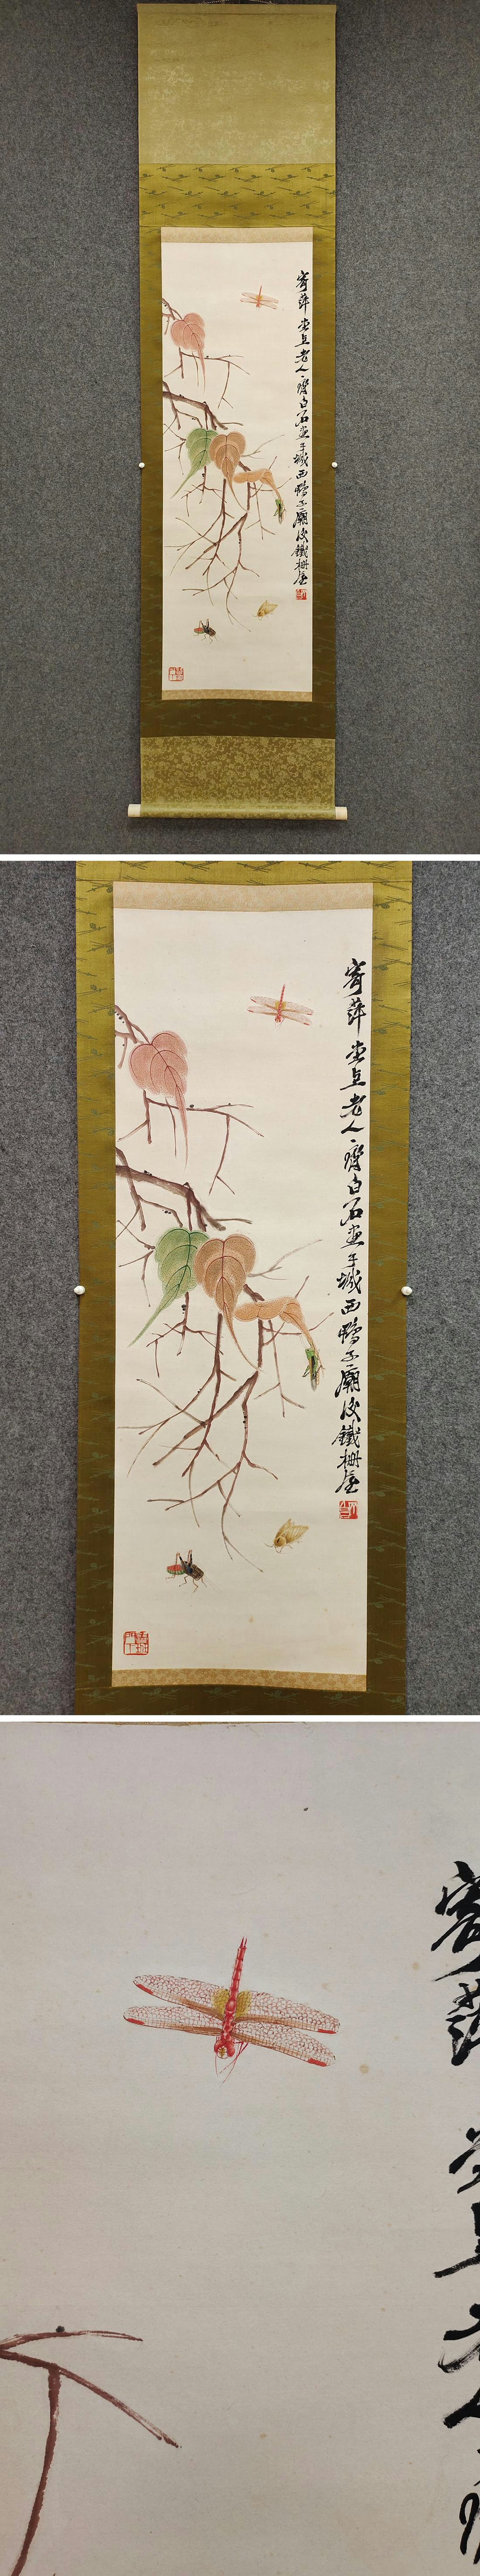 寄萍堂上老人齊白石畫于城西鴨子廟後鐵柵屋
寄萍堂上老人齊白石畫于城西鴨子廟後鐵柵屋
寄萍堂上老人